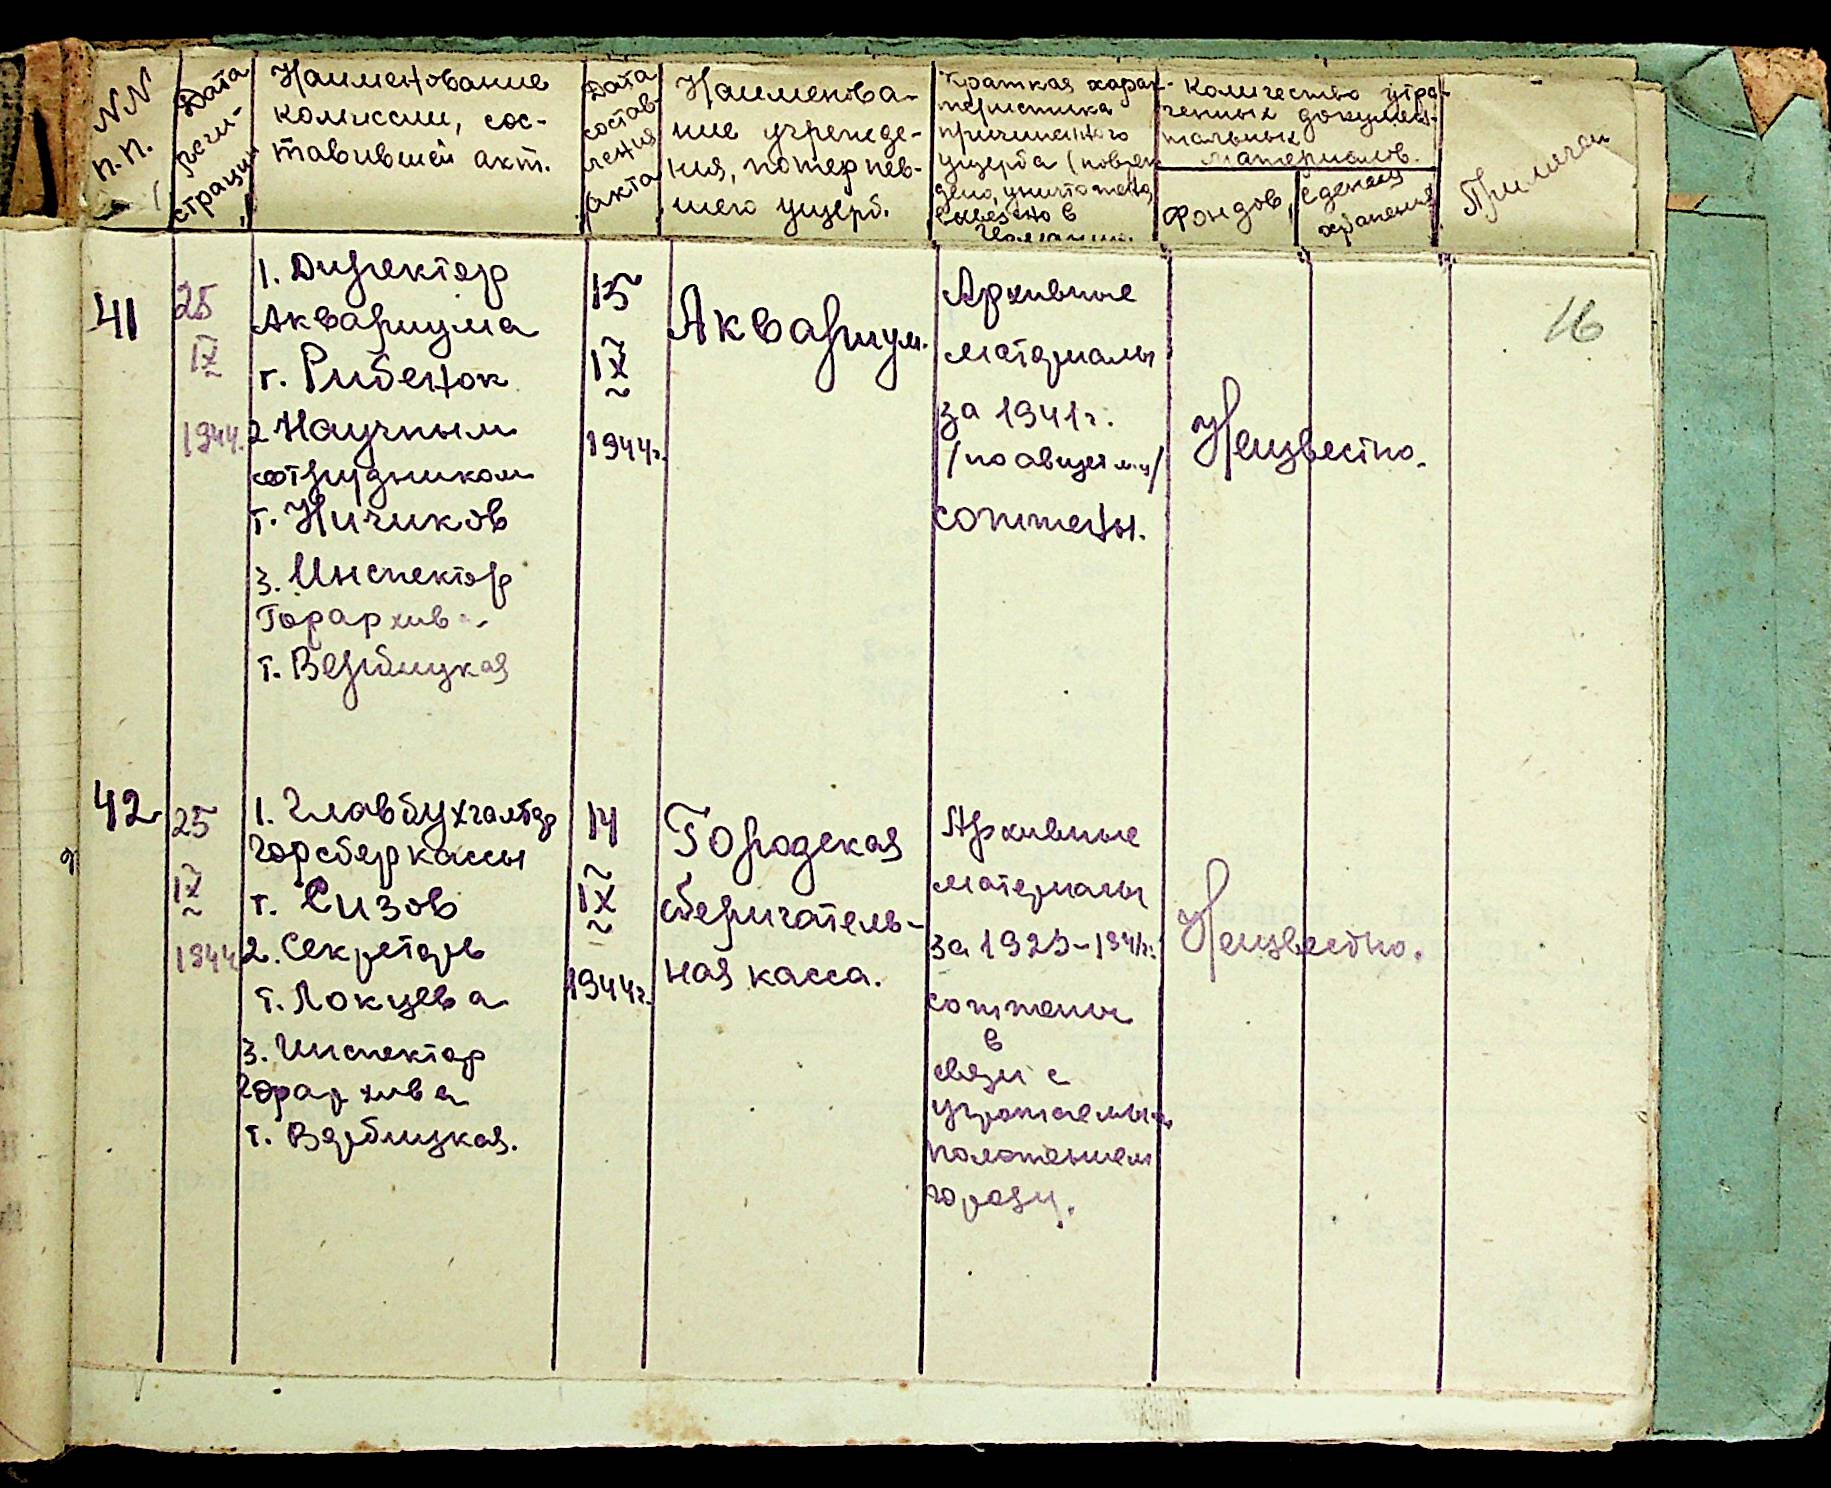 NN
п.п.
Дата
реги-
страции
Наименование
комиссии, сос-
тавившей акт.
Дата
состав-
ления
акта
Наименова-
ние учрежде-
ния, потерпев-
шего ущерб.
Краткая харак-
теристика
причиненного
ущерба (повреж
дено, уничтожено,
вывезено в
Количество утра-
ченных докумен-
тальных
материалов.
Фондов,
Единиц
хранения
Примечан
16
41
25
IX
1944.
1. Директор
Аквариума
т. Рибенок
2 Научным
сотрудником
т. Ничиков
3. Инспектор
Горархива
т. Верблицкая
15
IX
1944г.
Аквариум.
Архивные
материалы
за 1941г.
/по август м-ц/
сожжены.
Неизвестно.
42.
25
IX
1944
1. Главбухгалтер
Горсберкассы
т. Сизов
2. Секретарь
т. Локцева
3. Инспектор
Горархива
т. Верблицкая.
14
IX
1944г.
Городская
сберигатель-
ная касса.
Архивные
материалы
за 1925-1941г.
сожжены
в
связи с
угрожаемым
положением
городу.
Неизвестно.